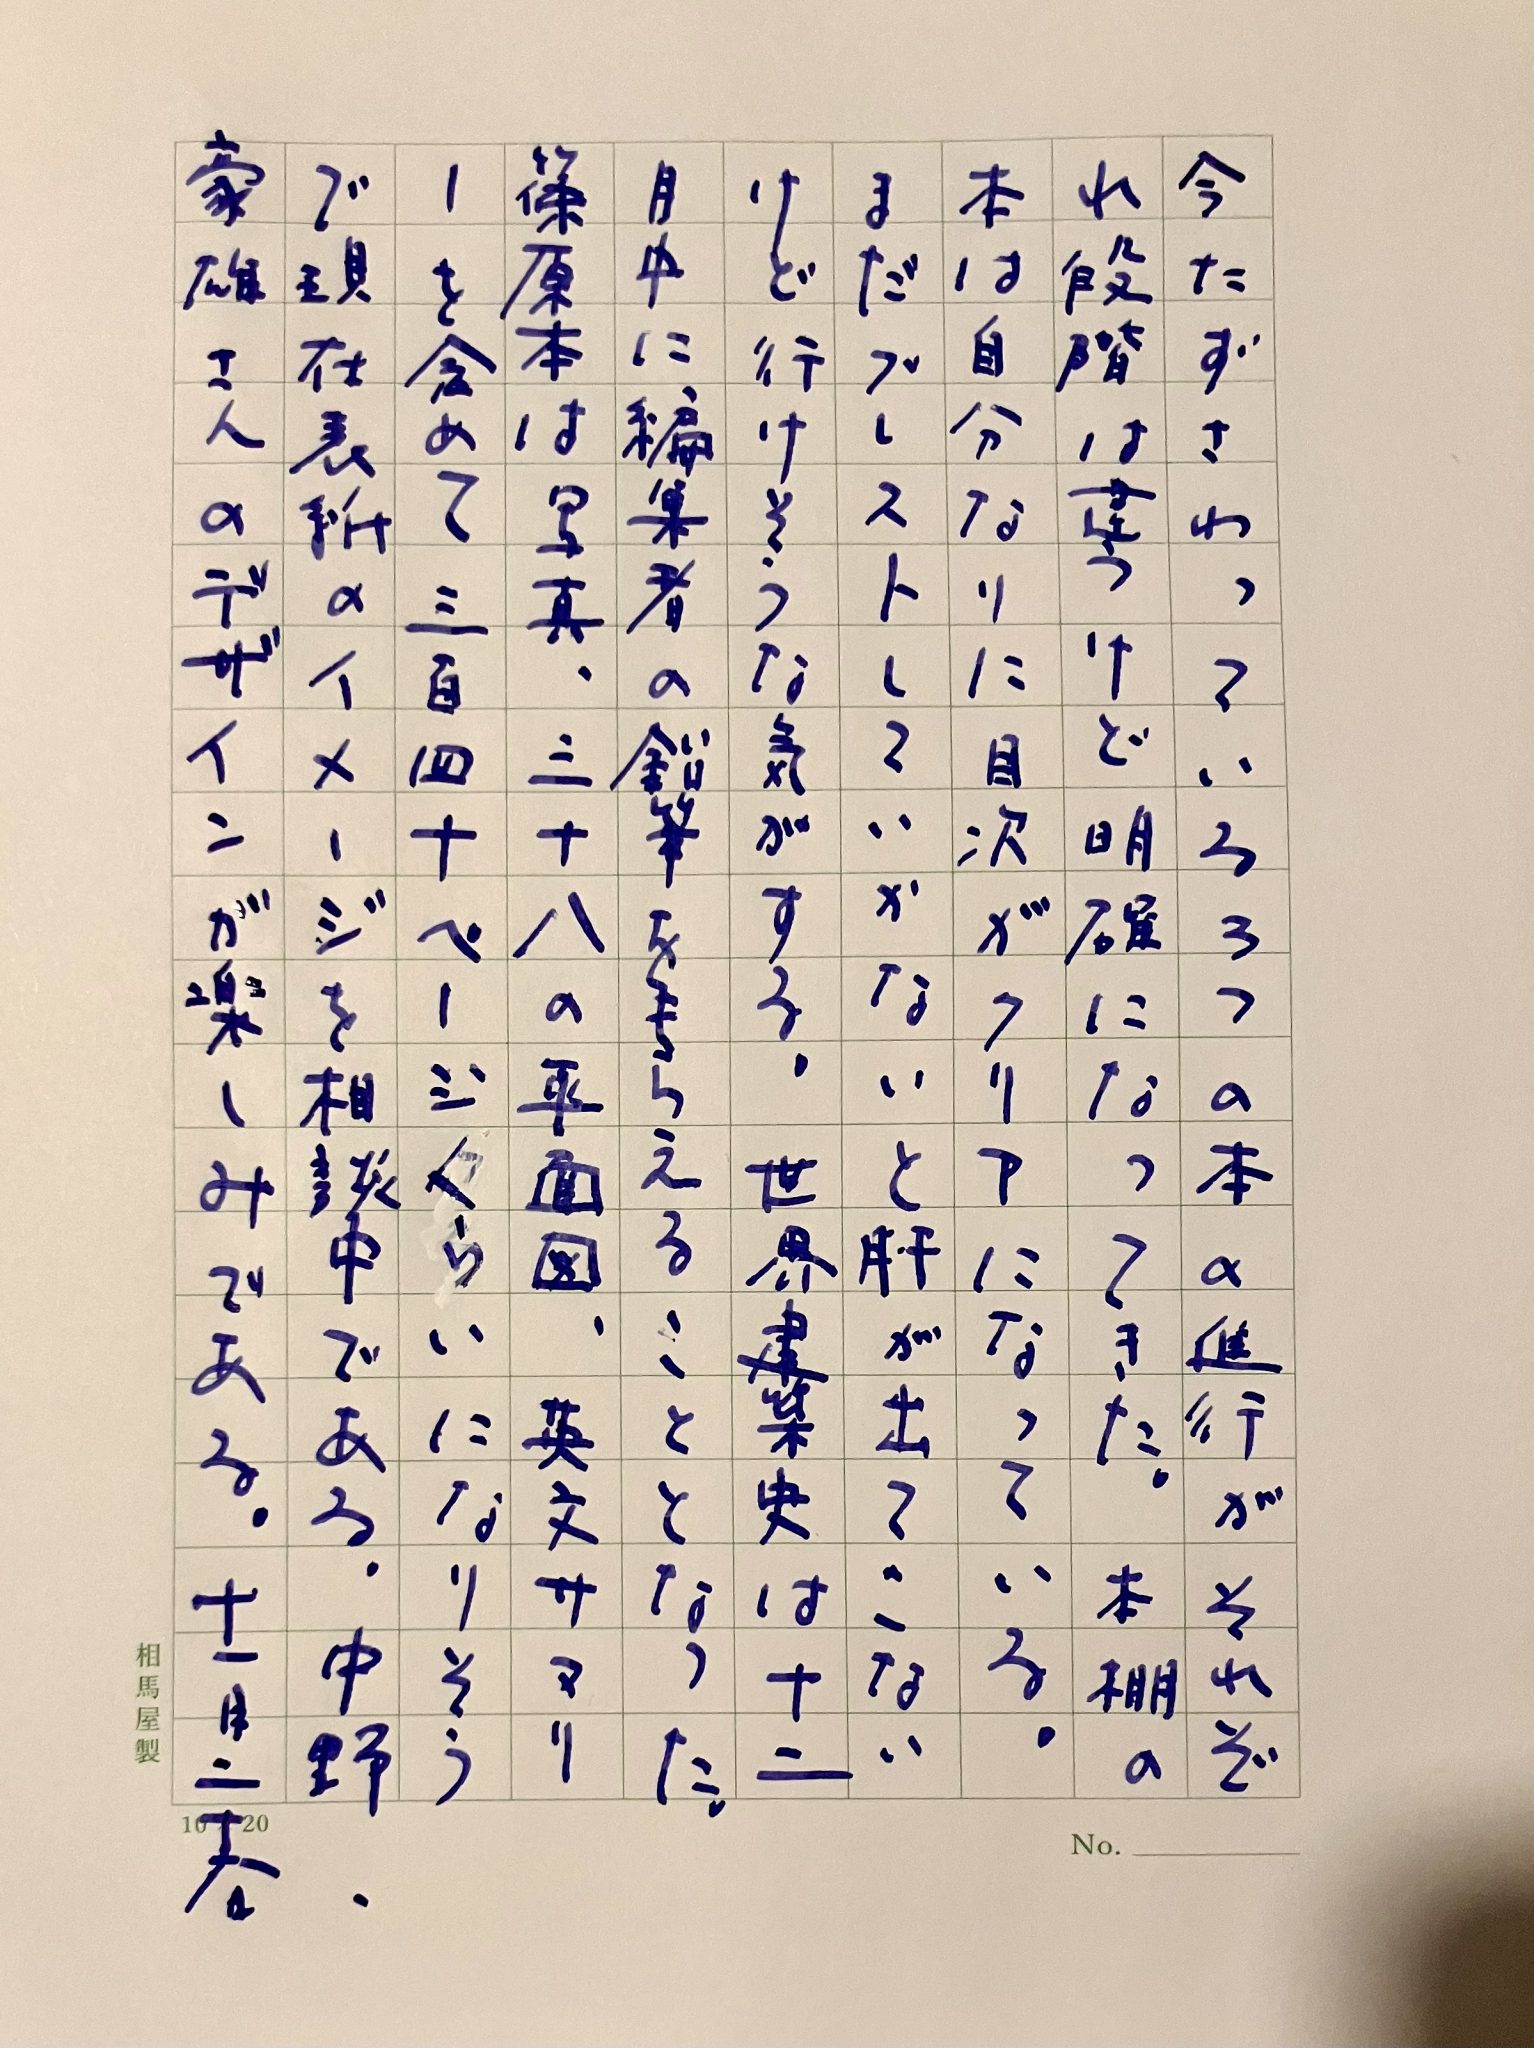 今たずさわっているろつの本の進行がそれぞ
れ段階は違うけど明確になってきた。本棚の
本は自分なりに目次がクリアになっている。
まだブレストしていかないと肝が出てこない
けど行けそうな気がする。世界建築史は十二
月中に編集者の鉛筆をもらえることとなった。
篠原本は写真、三十八の平面図、英文サマリ
ーを含めて三百四十ページくらいになりそう
で現在表紙のイメージを相談中である。中野
豪雄さんのデザインが楽しみである。十一月二
春
相馬屋製
10 20
No.